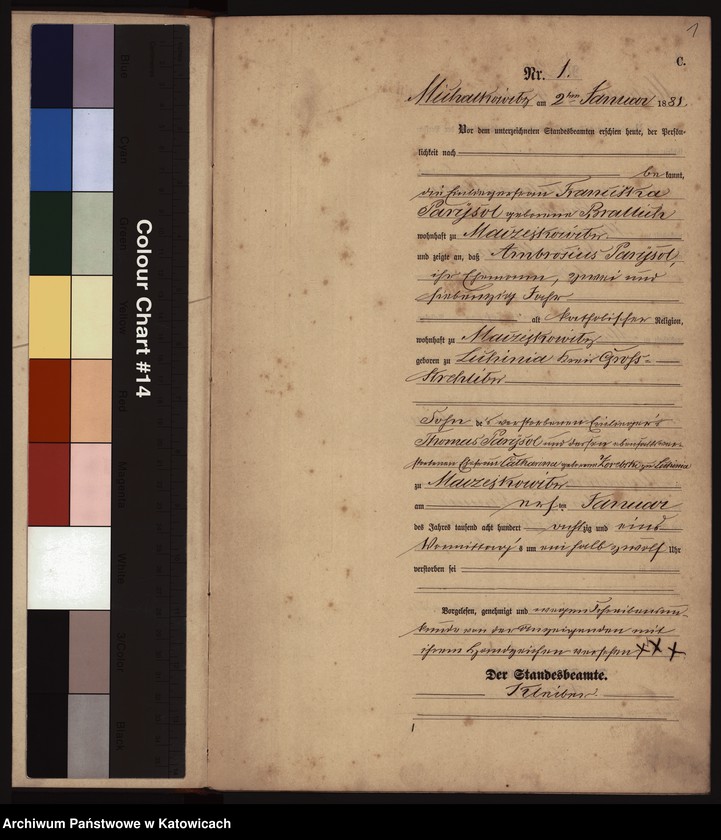 1
C.
Nr. 1.
Michalkowitz am 2ten Januar 1881.
Vor dem unterzeichneten Standesbeamten erschien heute, der Persön-
lichkeit nach
be kannt,
die Einliegerfrau Franciska
Parysol geborene
wohnhaft zu Maczeikowitz
und zeigte an, daß Ambrosius Parysol,
ihr Ehemann, zwei und
siebenzig Jahr
alt katholischer Religion,
wohnhaft zu Maczeikowitz
geboren zu Kreis Groß-
Strehlitz
Sohn des verstorbenen Einlieger's
Thomas Parysol und dessen ebenfalls ver-
storbenen Ehefrau geborene
zu Maczeikowitz
am ersten Januar
des Jahres tausend acht hundert achtzig und eins
Vormittag's um einhalb zwölf Uhr
verstorben sei
Vorgelesen, genehmigt und wegen Schreibensun-
kunde von der Anzeigenden mit
ihrem Handzeichen versehen XXX
Der Standesbeamte.
Kleiber
Colour Chart #14
Blue
Cyan
Green
Yellow
Red
Magenta
White
3/Color
Black
Archiwum Państwowe w Katowicach